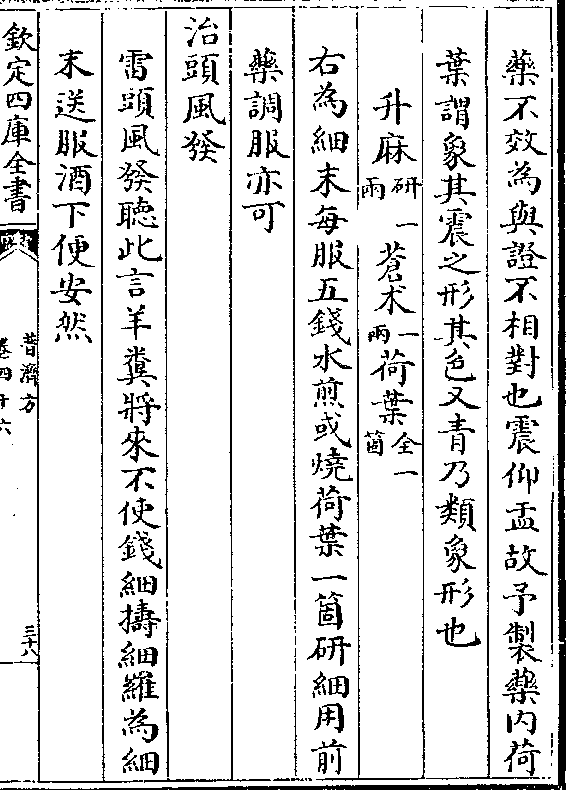 藥不效為與證不相對也震仰盂故予製藥内荷
葉謂象其震之形其色又青乃類象形也
升麻研一兩蒼术一兩荷葉全一箇
右為細末每服五錢水煎或燒荷葉一箇研細用前
藥調服亦可
治頭風發
雷頭風發聽此言羊糞將來不使錢細擣細羅為細
末送服酒下便安然
欽定四庫全書
普濟方
卷四十六
三十八